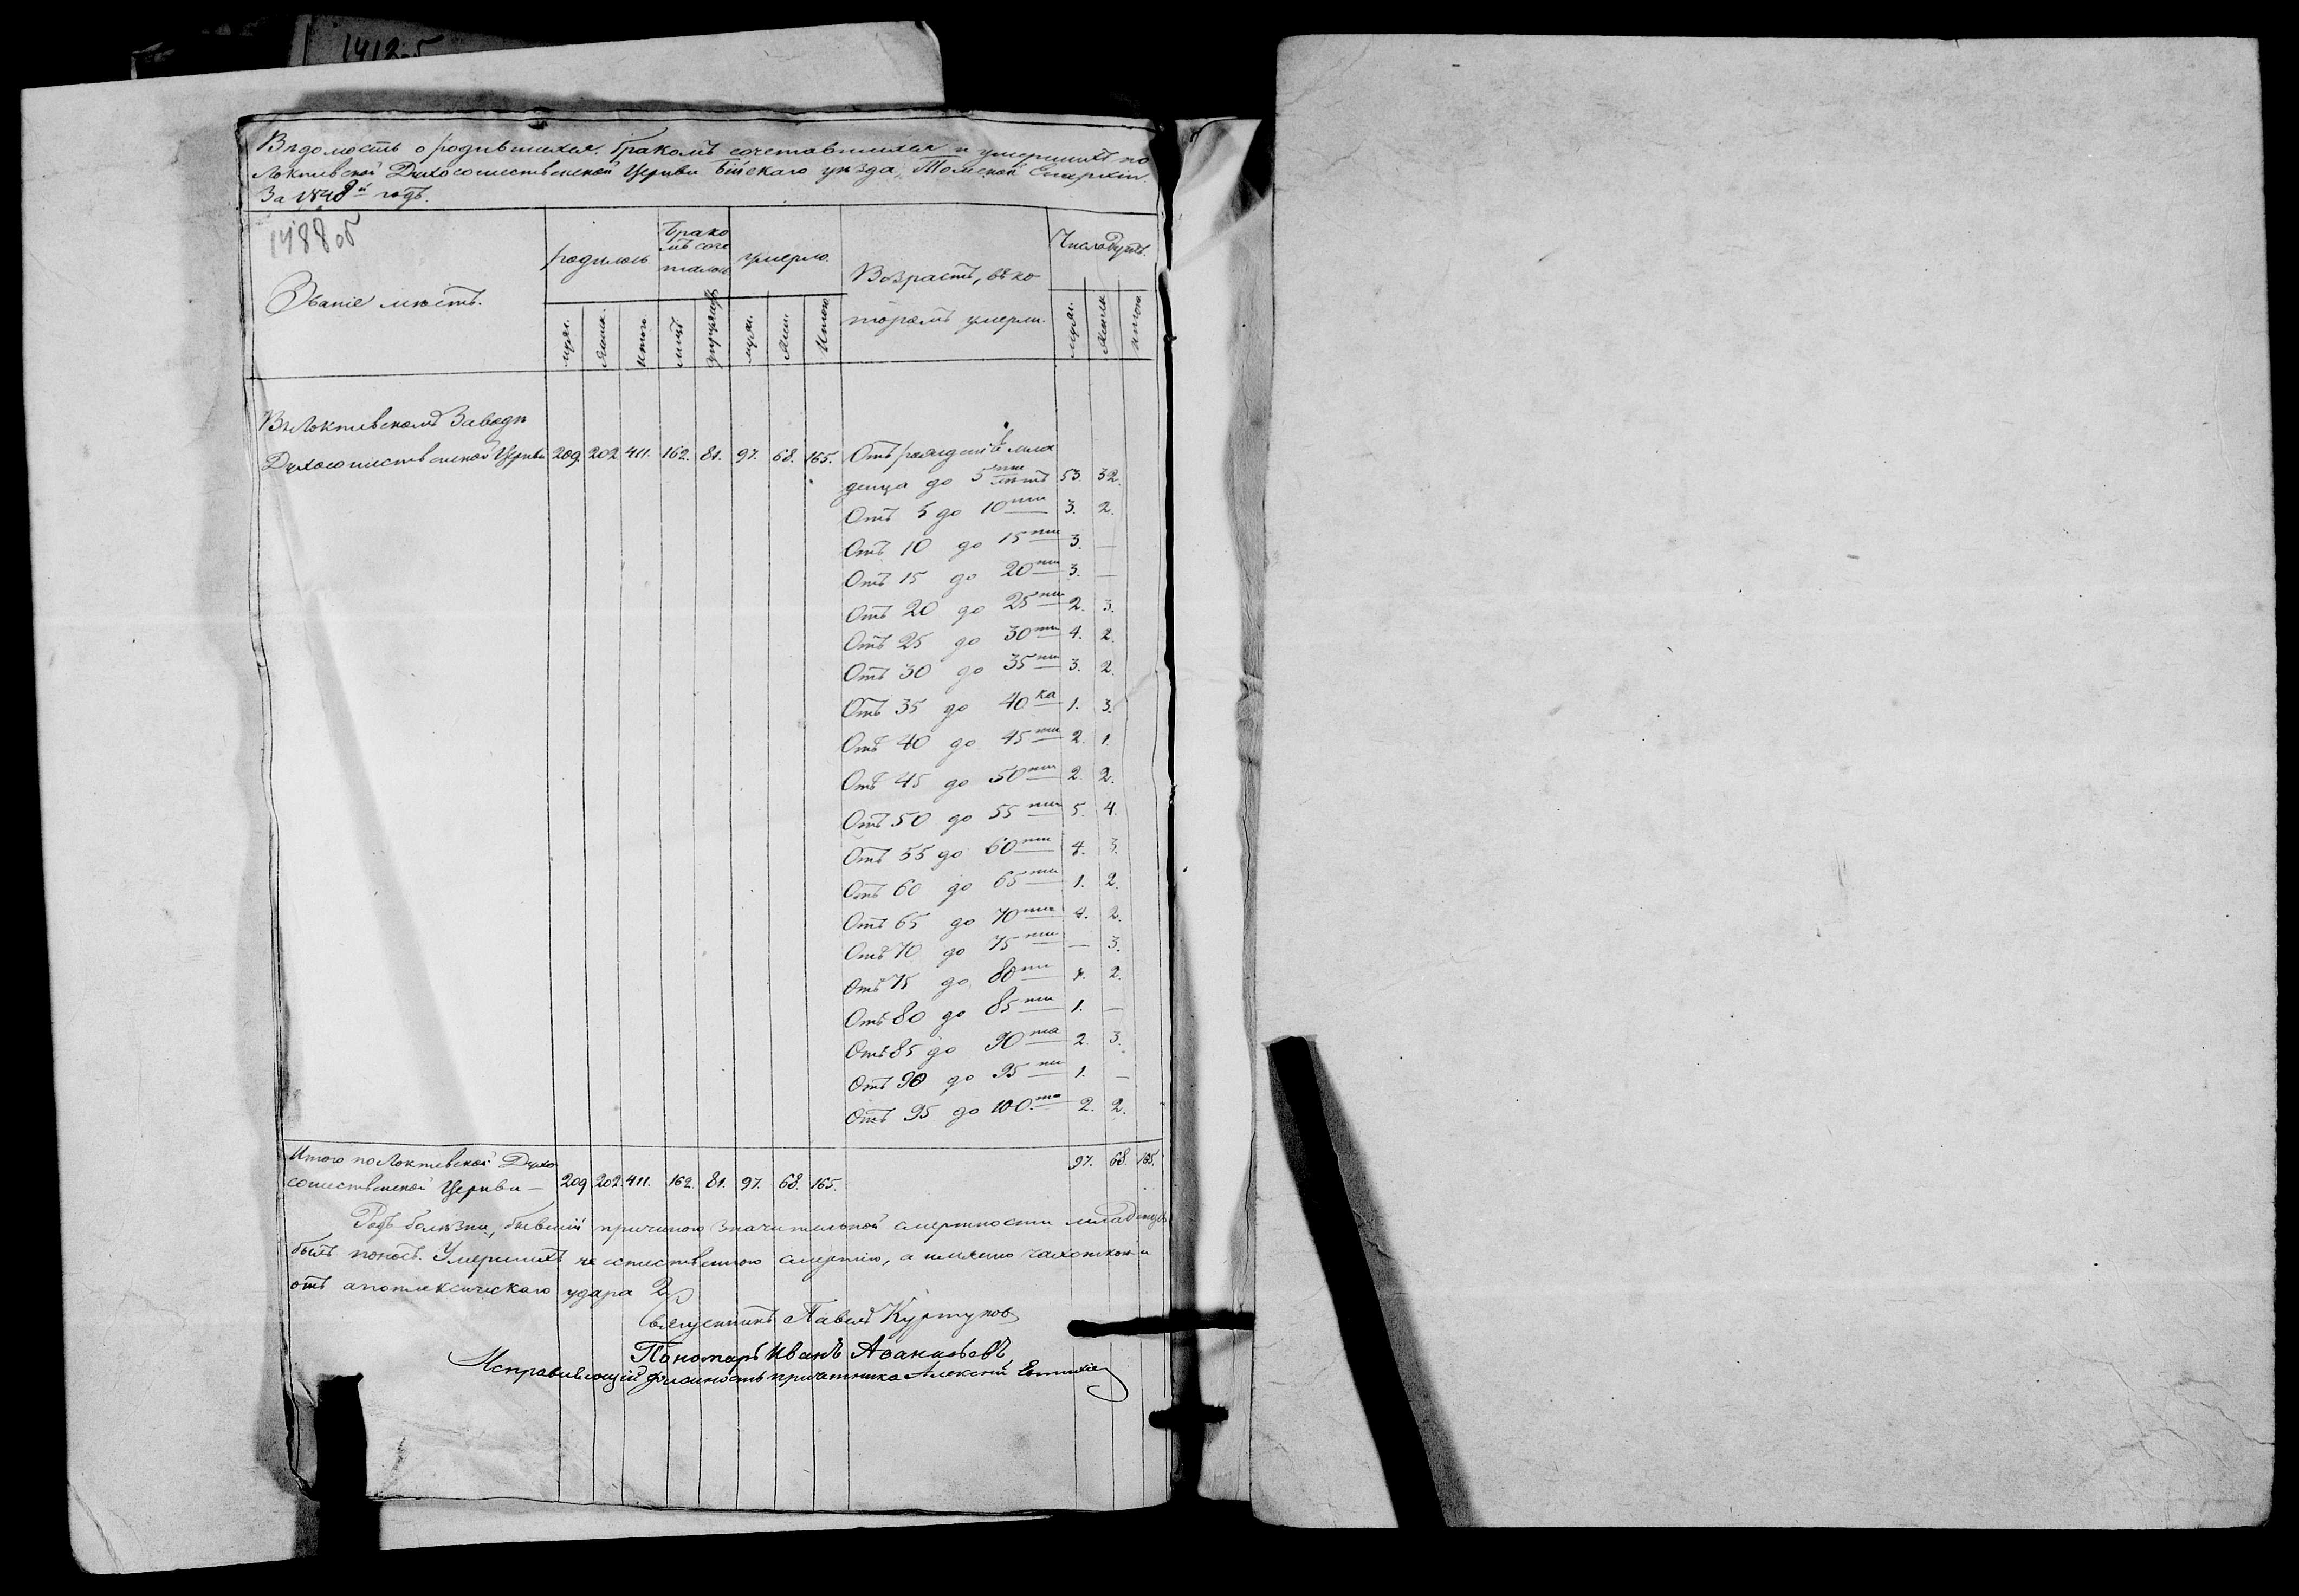 1412об
Вѣдомость о родившихся, бракомъ сочетавшихся и умершихъ по
Локтевской Духосошественской Церкви Бійскаго уѣзда, Томской Епархіи.
За 1848й годъ.
1488об
Званіе мѣстъ.
родилось
Брако
мъ соче
талось
умерло.
Возрастъ, въ ко
торомъ умерли.
Число душъ.
муж. женск. итого. лицъ муж. жен. Итого муж. женск. итого
Въ Локтевскомъ Заводѣ
Духосошественской Церкви 209. 202. 411. 162. 81. 97. 68. 165. Отъ рожденія млад
денца до 5ти лѣтъ 53. 32.
Отъ 5 до 10ти 3. 2.
Отъ 10 до 15ти 3. —
Отъ 15 до 20ти 3. —
Отъ 20 до 25ти 2. 3.
Отъ 25 до 30ти 4. 2.
Отъ 30 до 35ти 3. 2.
Отъ 35 до 40ка 1. 3.
Отъ 40 до 45ти 2. 1.
Отъ 45 до 50ти 2. 2.
Отъ 50 до 55ти 5. 4.
Отъ 55 до 60ти 4. 3.
Отъ 60 до 65ти 1. 2.
Отъ 65 до 70ти 4. 2.
Отъ 70 до 75ти — 3.
Отъ 75 до 80ти 2.
Отъ 80 до 85ти 1. —
Отъ 85 до 90та 2. 3.
Отъ 90 до 95ти 1. —
Отъ 95 до 100та 2. 2.
Итого по Локтевской Духо
сошественской Церкви — 209. 202. 411. 162. 81. 97. 68. 165. 97. 68. 165.
Родъ болѣзни, бывшій причиною значительной смертности младенцевъ
былъ поносъ. Умершихъ не естественною смертію, а именно чахоткою и
отъ апоплексическаго удара 2.
Священникъ Павелъ
Пономарь Иванъ
Исправляющій должность причетника Алексѣй